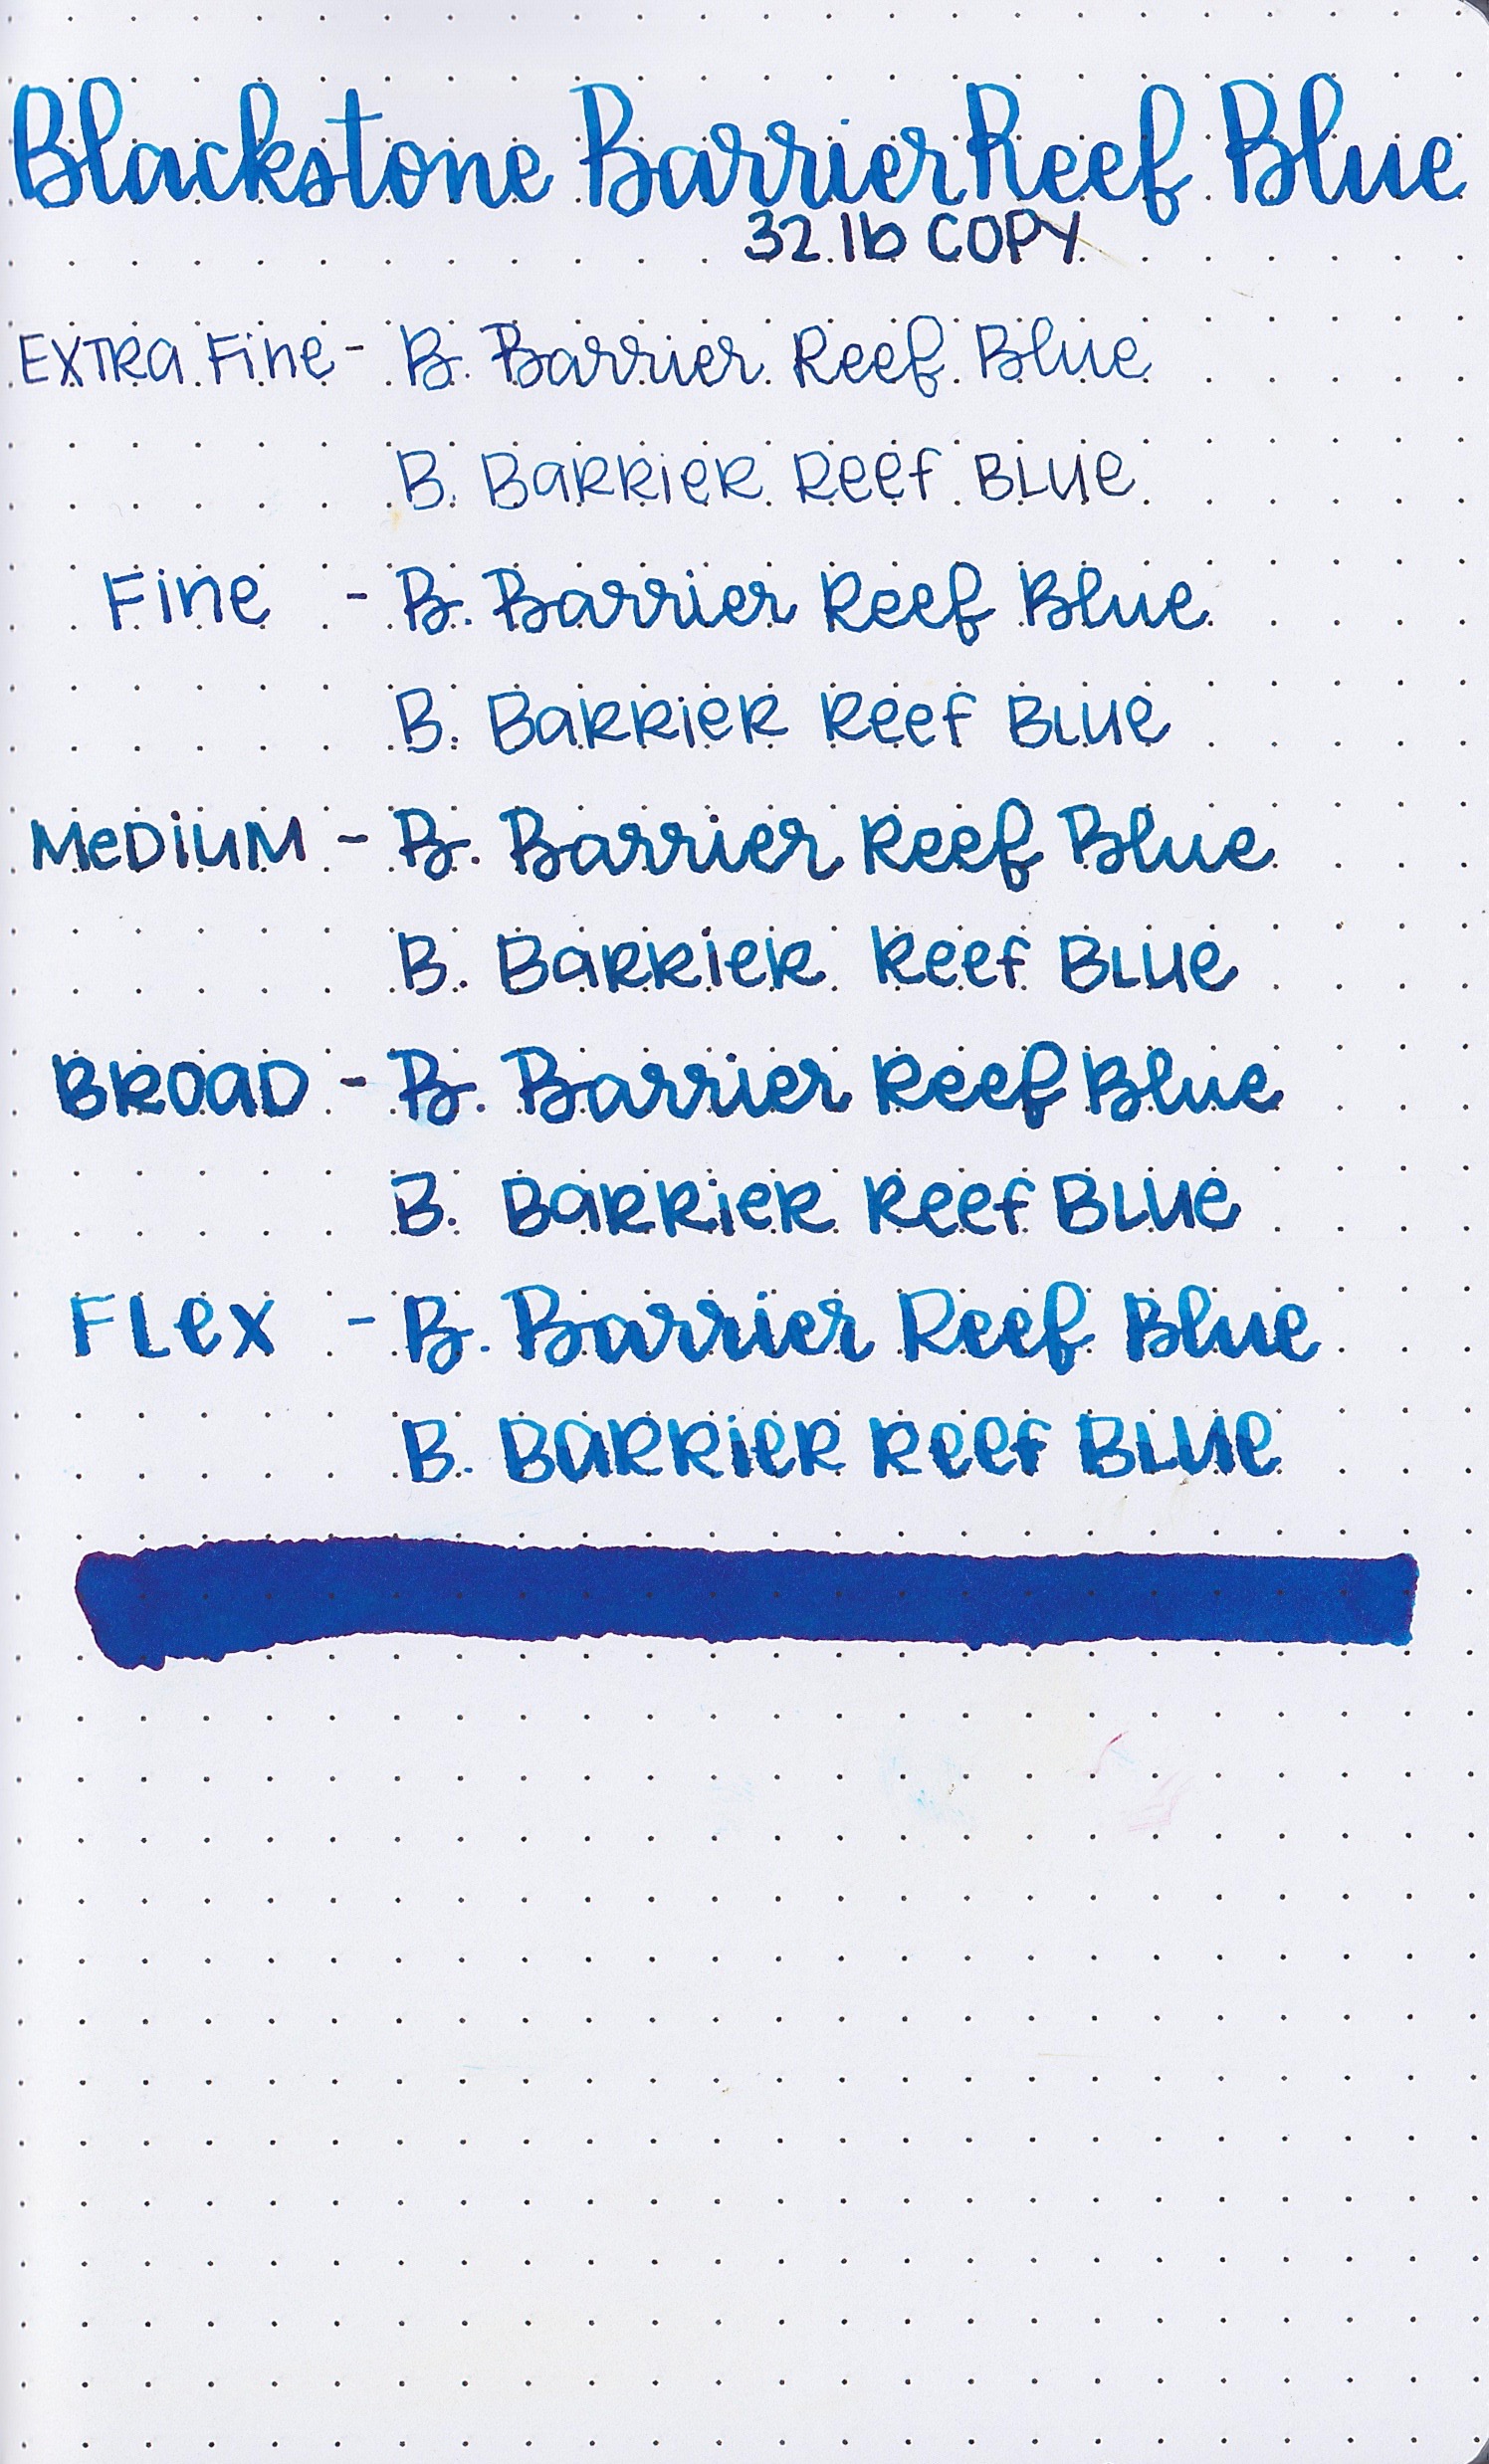 Blackstone Barrier Reef Blue
32 lb COPY
EXTRA Fine - B. Barrier Reef Blue
B. BARRieR Reef BLUe
Fine - B. Barrier Reef Blue
B. BARRieR Reef BLUe
MeDiUM - B. Barrier Reef Blue
B. BARRieR Reef BLUe
BROAD - B. Barrier Reef Blue
B. BARRieR Reef BLUe
FLex - B. Barrier Reef Blue
B. BARRieR Reef BLUe